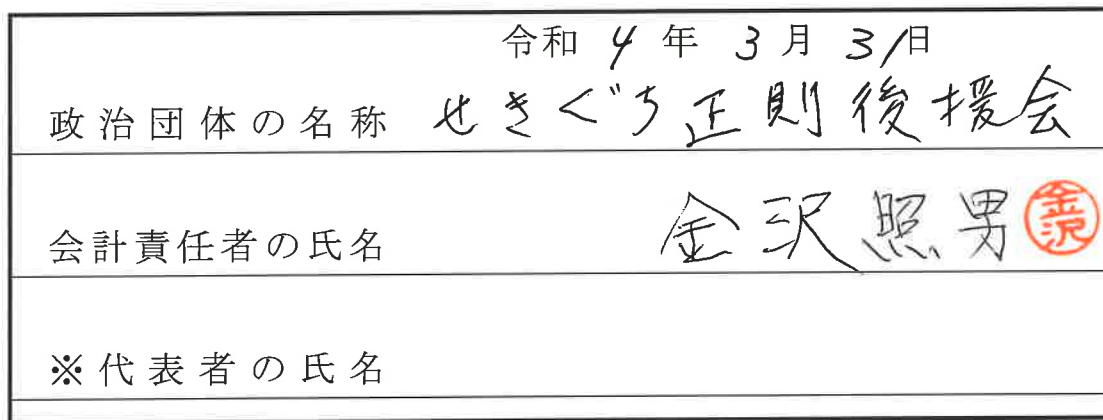 令和 4 年 3 月 31日
政治団体の名称 せきぐち正則後援会
会計責任者の氏名 金沢照男 金沢
※代表者の氏名